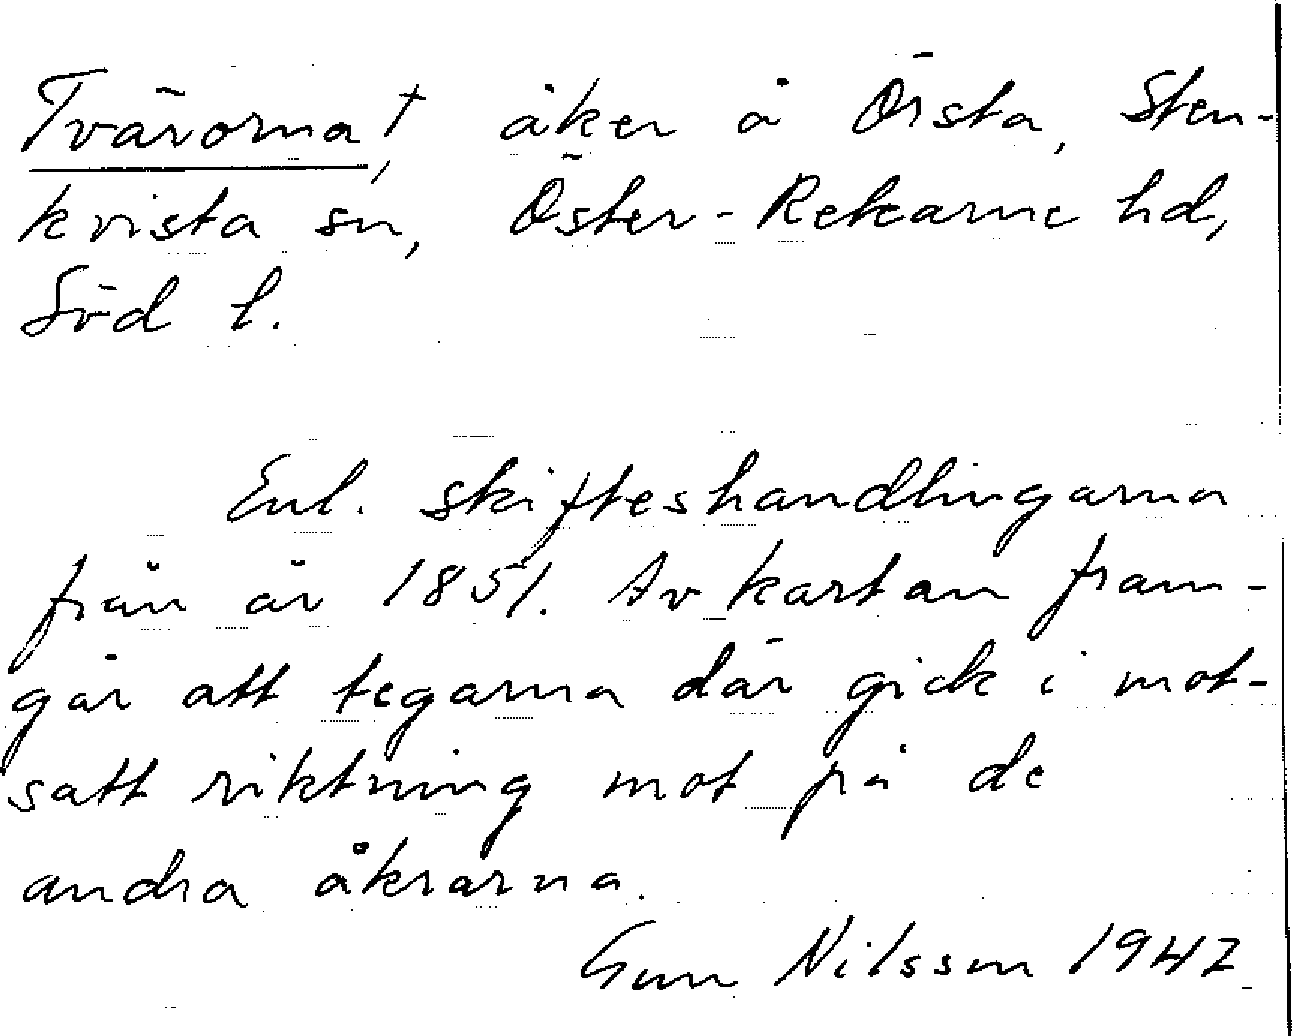 Tvärorna†, åker å Örsta, Sten-
kvista sn, Öster-Rekarne hd,
Söd l.
Enl. skifteshandlingarna
från år 1851. Av kartan fram-
går att tegarna där gick i mot-
satt riktning mot på de
andra åkrarna.
Gun Nilsson 1947